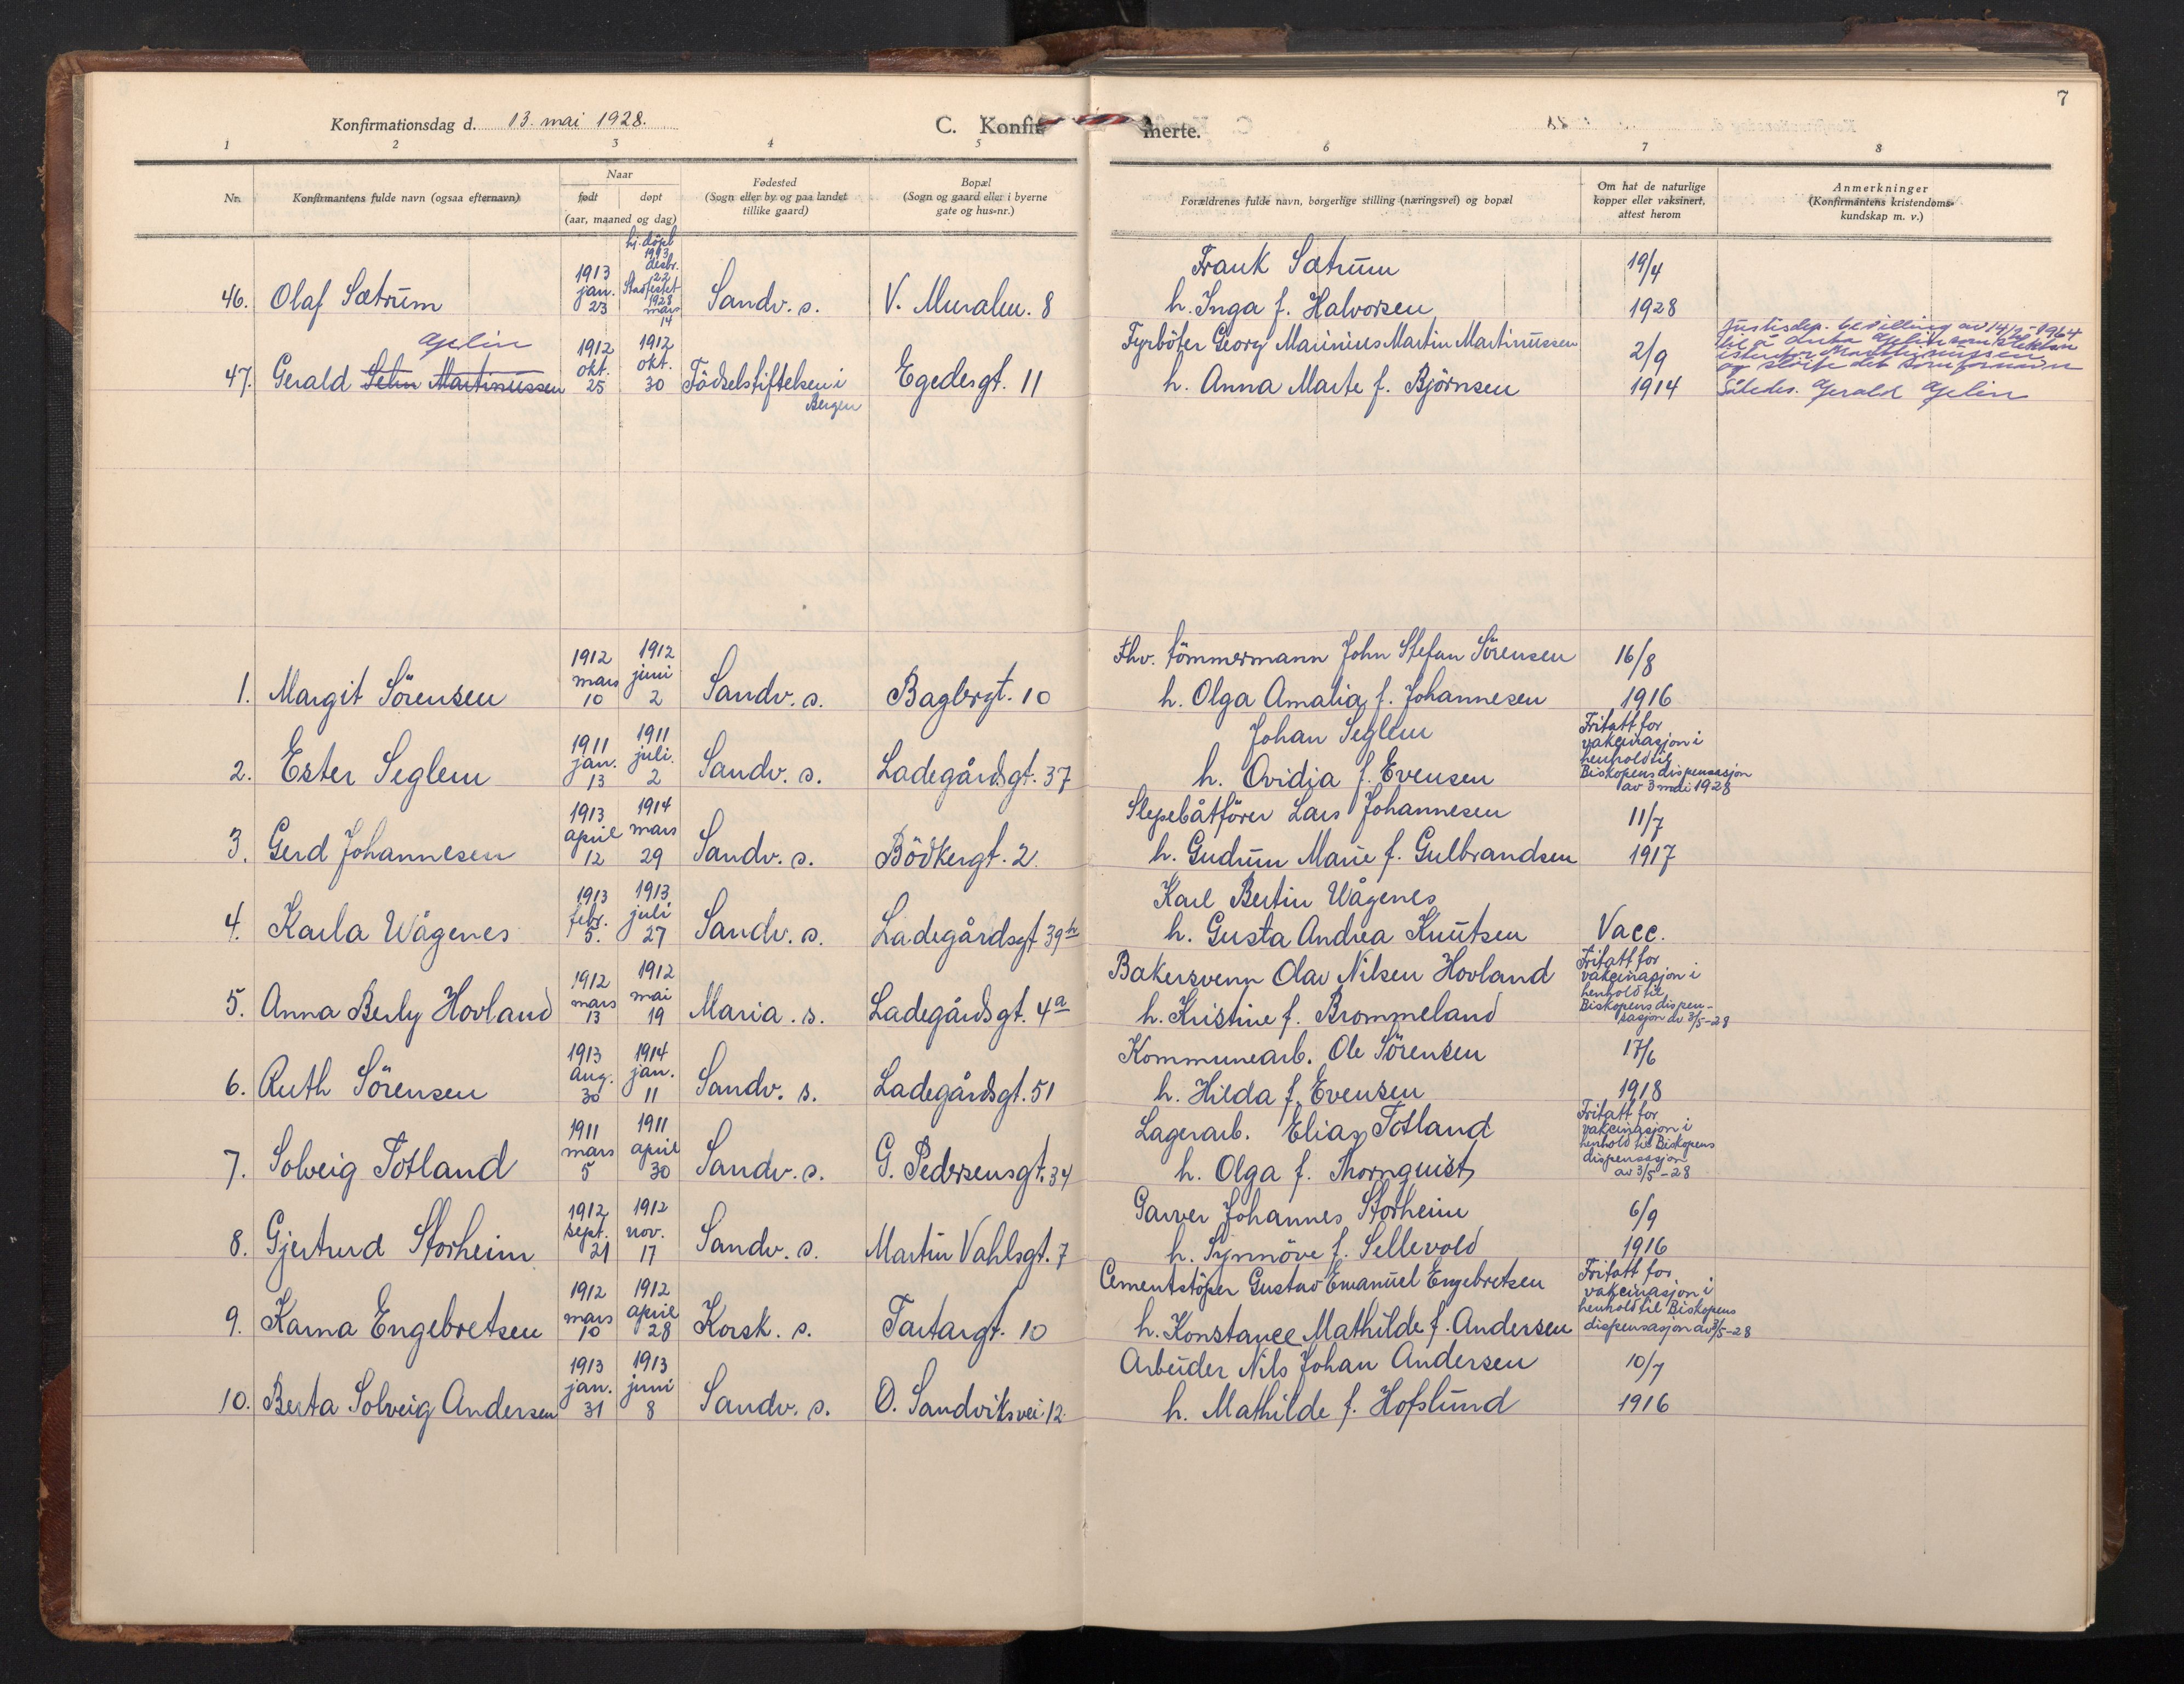 7
Konfirmationsdag d. 13. mai 1928.
C. Konfirmerte.
1 2 3 4 5 6 7 8
Nr.
Konfirmantens fulde navn (ogsaa efternavn)
Naar
født døpt
(aar, maaned og dag)
Fødested
(Sogn eller by og paa landet
tillike gaard)
Bopæl
(Sogn og gaard eller i byerne
gate og hus-nr.)
Forældrenes fulde navn, borgerlige stilling (næringsvei) og bopæl
Om hat de naturlige
kopper eller vaksinert,
attest herom
Anmerkninger
(Konfirmantens kristendoms-
kundskap m. v.)
46. Olaf Sætrum
1913 jan. 23
hj. döpt 1913 desbr. 22 Stadfestet 1928 mars 14
Sandv. s.
V. Muralm. 8
Frank Sætrum
h. Inga f. Halvorsen
19/4
1928
Gjelin
47. Gerald Selin Martinussen
1912 okt. 25
1912 okt. 30
Födselstiftelsen i
Bergen
Egedesgt. 11
Fyrböter Georg Marinius Martin Martinussen
h. Anna Marte f. Björnsen
2/9
1914
Justisdep. bevilling av 14/2-1964
til å
istedenfor Martinussen
og slöife det som fornavn
Således. Gerald Gjelin
1. Margit Sörensen
1912 mars 10
1912 juni 2
Sandv. s.
Baglergt. 10
Fhv. tömmermann John Stefan Sörensen
h. Olga Amalia f. Johannesen
16/8
1916
2. Ester Seglem
1911 jan. 13
1911 juli. 2
Sandv. s.
Ladegårdsgt. 37
Johan Seglem
h. Ovidia f. Evensen
Fritatt for
vakcinasjon i
henhold til
Biskopens dispensasjon
av 3 mai 1928
3. Gerd Johannesen
1913 april 12
1914 mars 29
Sandv. s.
Bödkergt. 2.
Slepebåtförer Lars Johannesen
h. Gudrun Marie f. Gulbrandsen
11/7
1917
4. Karla Wågenes
1913 febr. 5.
1913 juli 27
Sandv. s.
Ladegårdsgt 39 h
Karl Bertin Wågenes
h. Gusta Andrea Knutsen
Vacc.
5. Anna Berly Hovland
1912 mars 13
1912 mai 19
Maria. s.
Ladegårdsgt. 4 a
Bakersvenn Olav Nilsen Hovland
h. Kristine f. Brommeland
Fritatt for
vakcinasjon i
henhold til
Biskopens dispen-
sasjon av 3/5-28
6. Ruth Sörensen
1913 aug. 30
1914 jan. 11
Sandv. s.
Ladegårdsgt. 51
Kommunearb. Ole Sörensen
h. Hilda f. Evensen
17/6
1918
7. Solveig Totland
1911 mars 5
1911 april 30
Sandv. s.
G. Pedersensgt. 34
Lagerarb. Elias Totland
h. Olga f. Thornquist
Fritatt for
vakcinasjon i
henhold til Biskopens
dispensasjon
av 3/5-28
8. Gjertrud Storheim
1912 sept. 21
1912 nov. 17
Sandv. s.
Martin Vahlsgt. 7
Garver Johannes Storheim
h. Synnöve f. Sellevold
6/9
1916
9. Karna Engebretsen
1912 mars 10
1912 april 28
Korsk. s.
Tartargt. 10
Cementstöper Gustav Emanuel Engebretsen
h. Konstance Mathilde f. Andersen
Fritatt for
vakcinasjon i
henhold til Biskopens
dispensasjon av 3/5-28
10. Berta Solveig Andersen
1913 jan. 31
1913 juni 8
Sandv. s.
O. Sandviksvei 12.
Arbeider Nils Johan Andersen
h. Mathilde f. Hofslund
10/7
1916